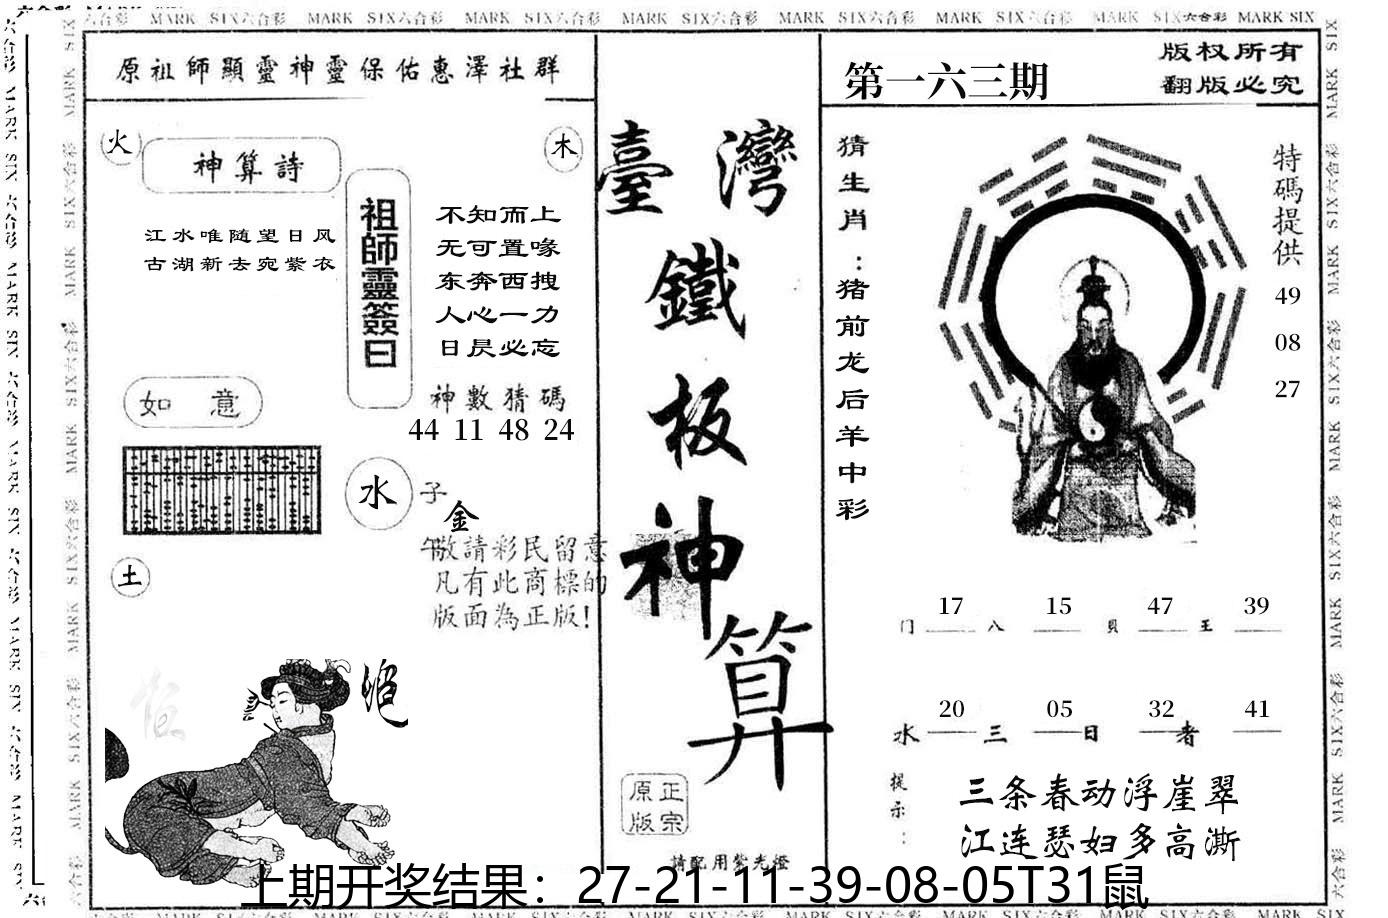 原祖師顯靈神靈保佑惠澤社群
火
神算詩
木
江水唯随望日风
古湖新去宛紫衣
祖師靈簽曰
不知而上
无可置喙
东奔西拽
人心一力
日昃必忘
神數猜碼
44 11 48 24
如意
水
子
金
午
敬請彩民留意
凡有此商標的
版面為正版!
土
臺灣鐵板神算
正宗原版
請配用紫光燈
第一六三期
版权所有
翻版必究
猜生肖:猪前龙后羊中彩
特碼提供
49
08
27
17 15 47 39
门 八 貝 王
20 05 32 41
水 三 日 者
提示:
三条春动浮崖翠
江连瑟妇多高澌
上期开奖结果：27-21-11-39-08-05T31鼠
MARK SIX六合彩